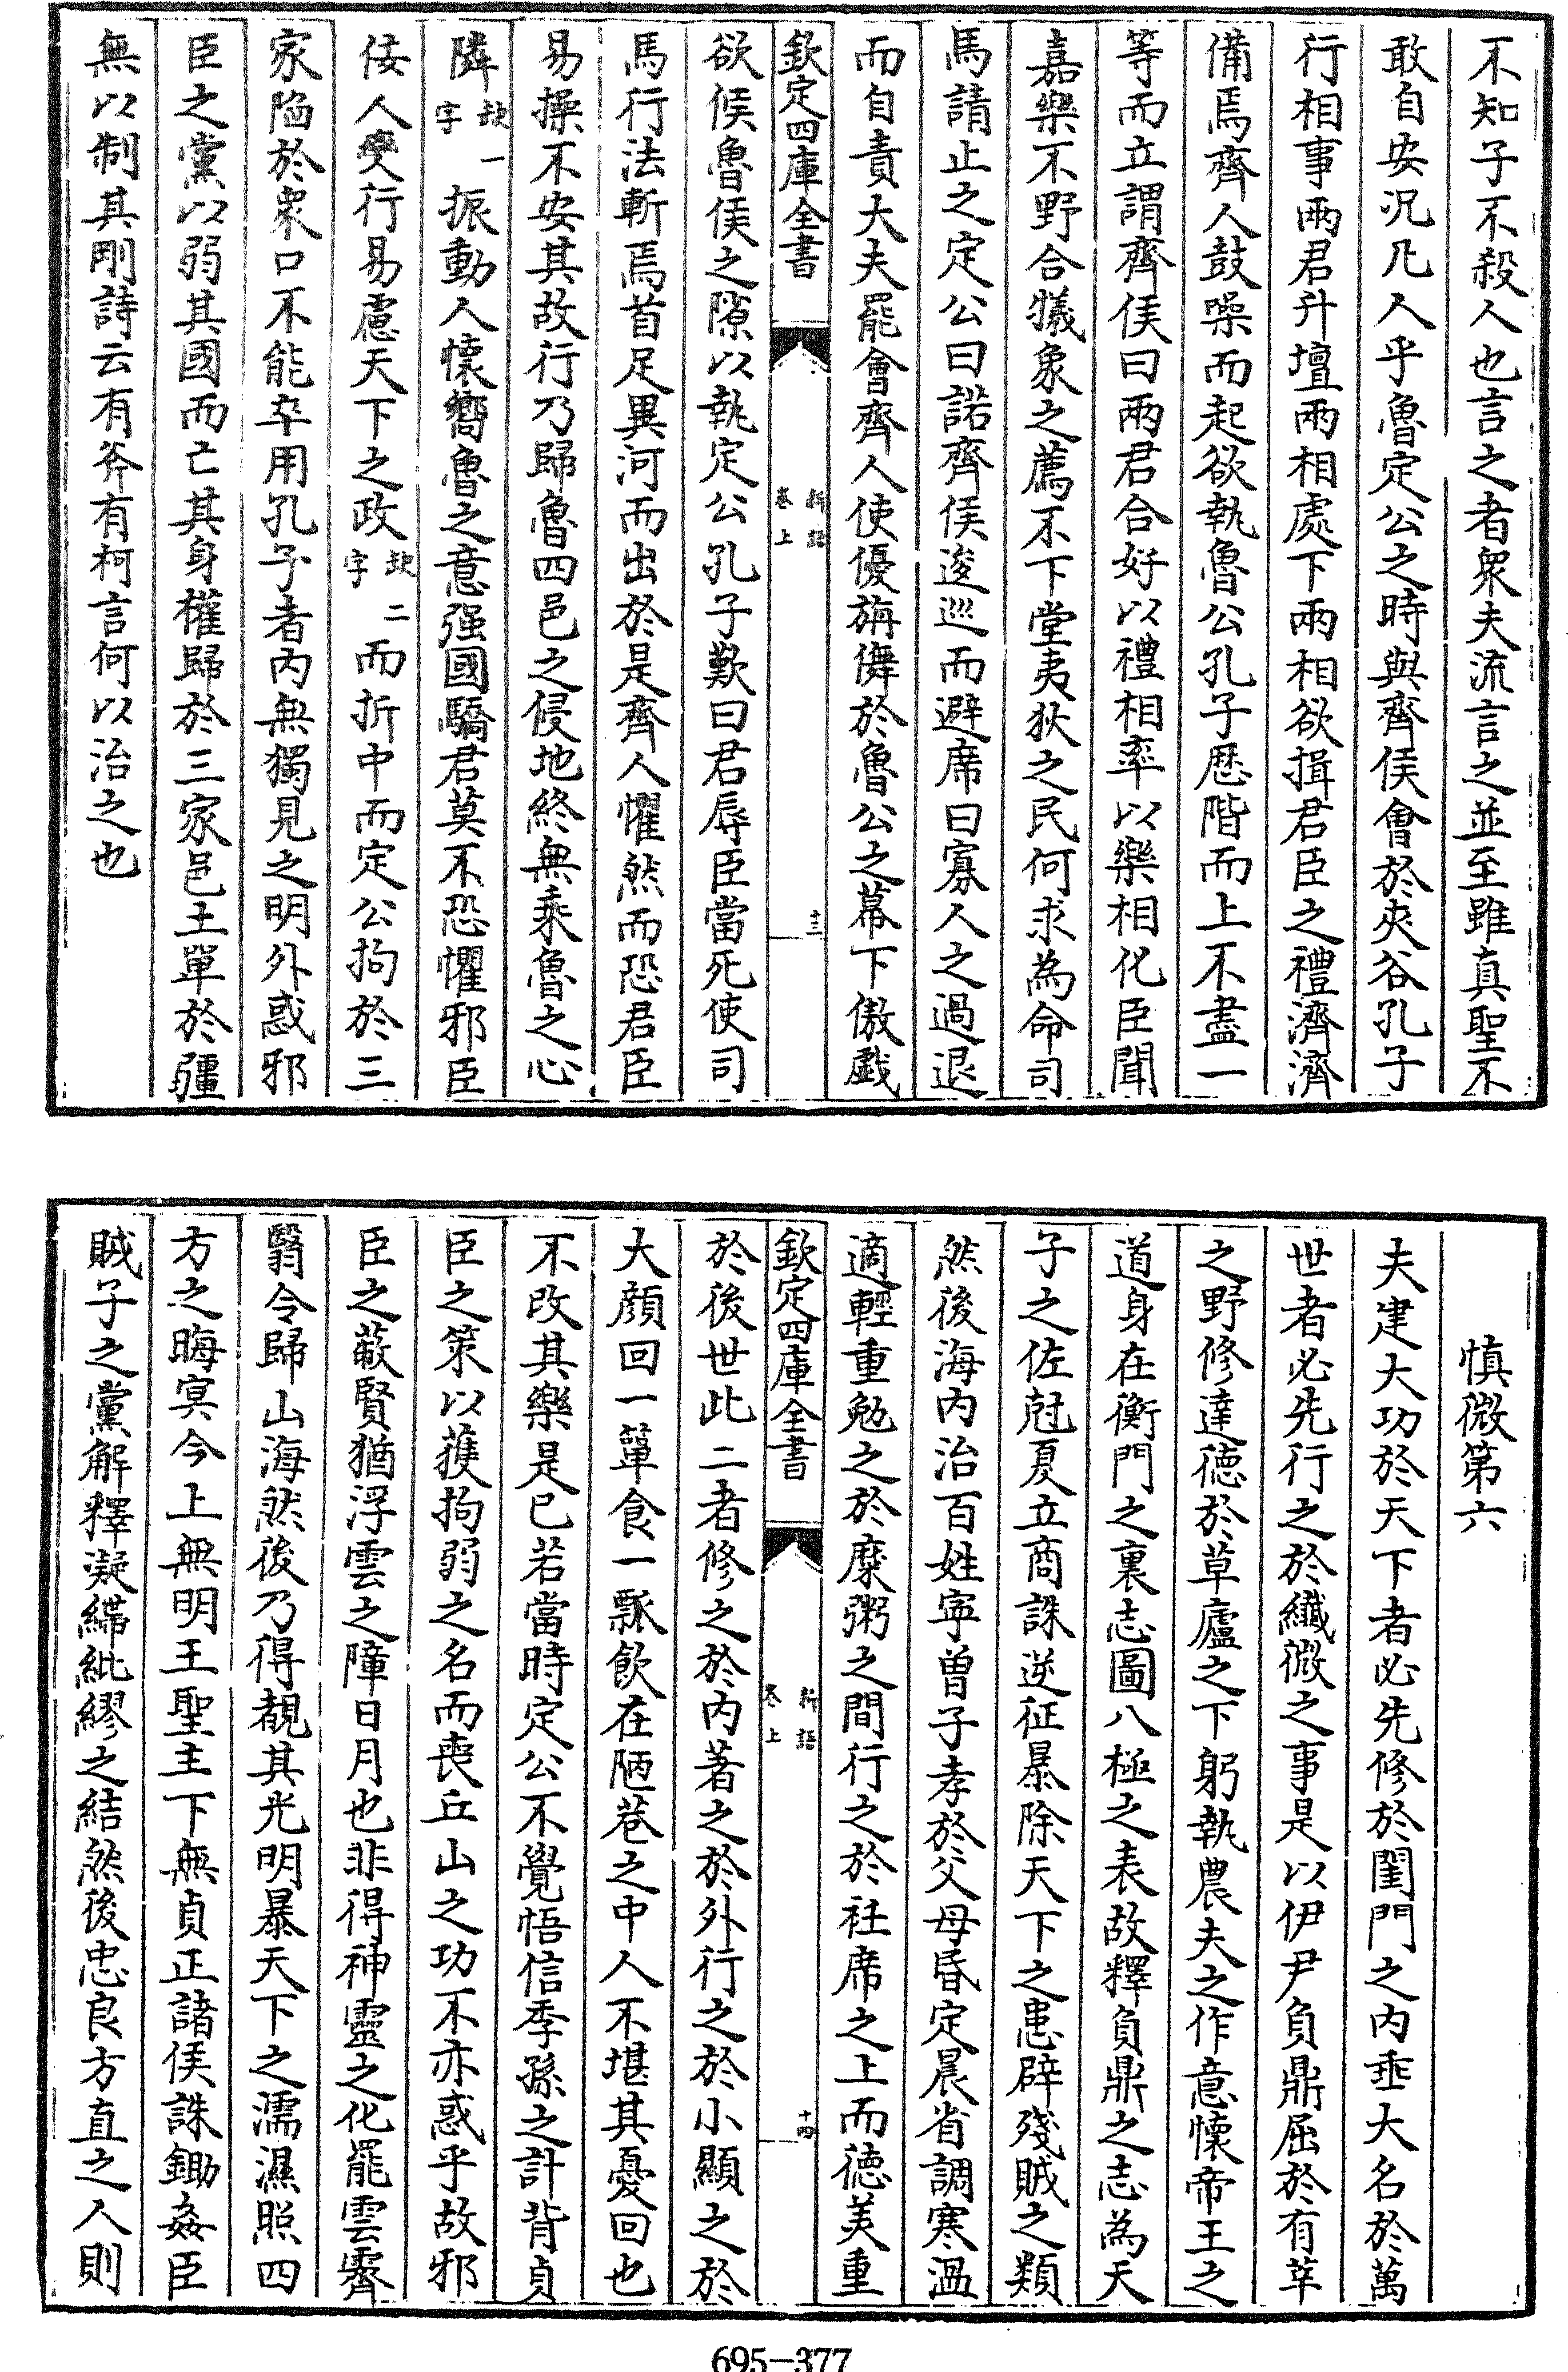 不知子不殺人也言之者衆夫流言之並至雖真聖不
敢自安況凡人乎魯定公之時與齊侯會於夾谷孔子
行相事兩君升壇兩相處下兩相欲揖君臣之禮濟濟
備焉齊人鼓噪而起欲執魯公孔子歷階而上不盡一
等而立謂齊侯曰兩君合好以禮相率以樂相化臣聞
嘉樂不野合犧象之薦不下堂夷狄之民何求為命司
馬請止之定公曰諾齊侯逡巡而避席曰寡人之過退
而自責大夫罷會齊人使優旃儛於魯公之幕下傲戲
欽定四庫全書
新語
卷上
十三
欲候魯侯之隙以執定公孔子歎曰君辱臣當死使司
馬行法斬焉首足異河而出於是齊人懼然而恐君臣
易操不安其故行乃歸魯四邑之侵地終無乘魯之心
隣缺一字振動人懷嚮魯之意强國驕君莫不恐懼邪臣
佞人變行易慮天下之政缺二字而折中而定公拘於三
家陷於衆口不能卒用孔子者內無獨見之明外惑邪
臣之黨以弱其國而亡其身權歸於三家邑土單於疆
無以制其剛詩云有斧有柯言何以治之也
慎微第六
夫建大功於天下者必先修於閨門之內垂大名於萬
世者必先行之於纖微之事是以伊尹負鼎屈於有莘
之野修達德於草廬之下躬執農夫之作意懷帝王之
道身在衡門之裏志圖八極之表故釋負鼎之志為天
子之佐尅夏立商誅逆征暴除天下之患辟殘賊之類
然後海內治百姓寧曾子孝於父母昏定晨省調寒溫
適輕重勉之於糜粥之間行之於衽席之上而德美重
欽定四庫全書
新語
卷上
十四
於後世此二者修之於內著之於外行之於小顯之於
大顏回一簞食一瓢飲在陋巷之中人不堪其憂回也
不改其樂是已若當時定公不覺悟信季孫之計背貞
臣之策以獲拘弱之名而喪丘山之功不亦惑乎故邪
臣之蔽賢猶浮雲之障日月也非得神靈之化罷雲霽
翳令歸山海然後乃得覩其光明暴天下之濡濕照四
方之晦㝠今上無明王聖主下無貞正諸侯誅鋤姦臣
賊子之黨解釋凝緤紕繆之結然後忠良方直之人則
695-377